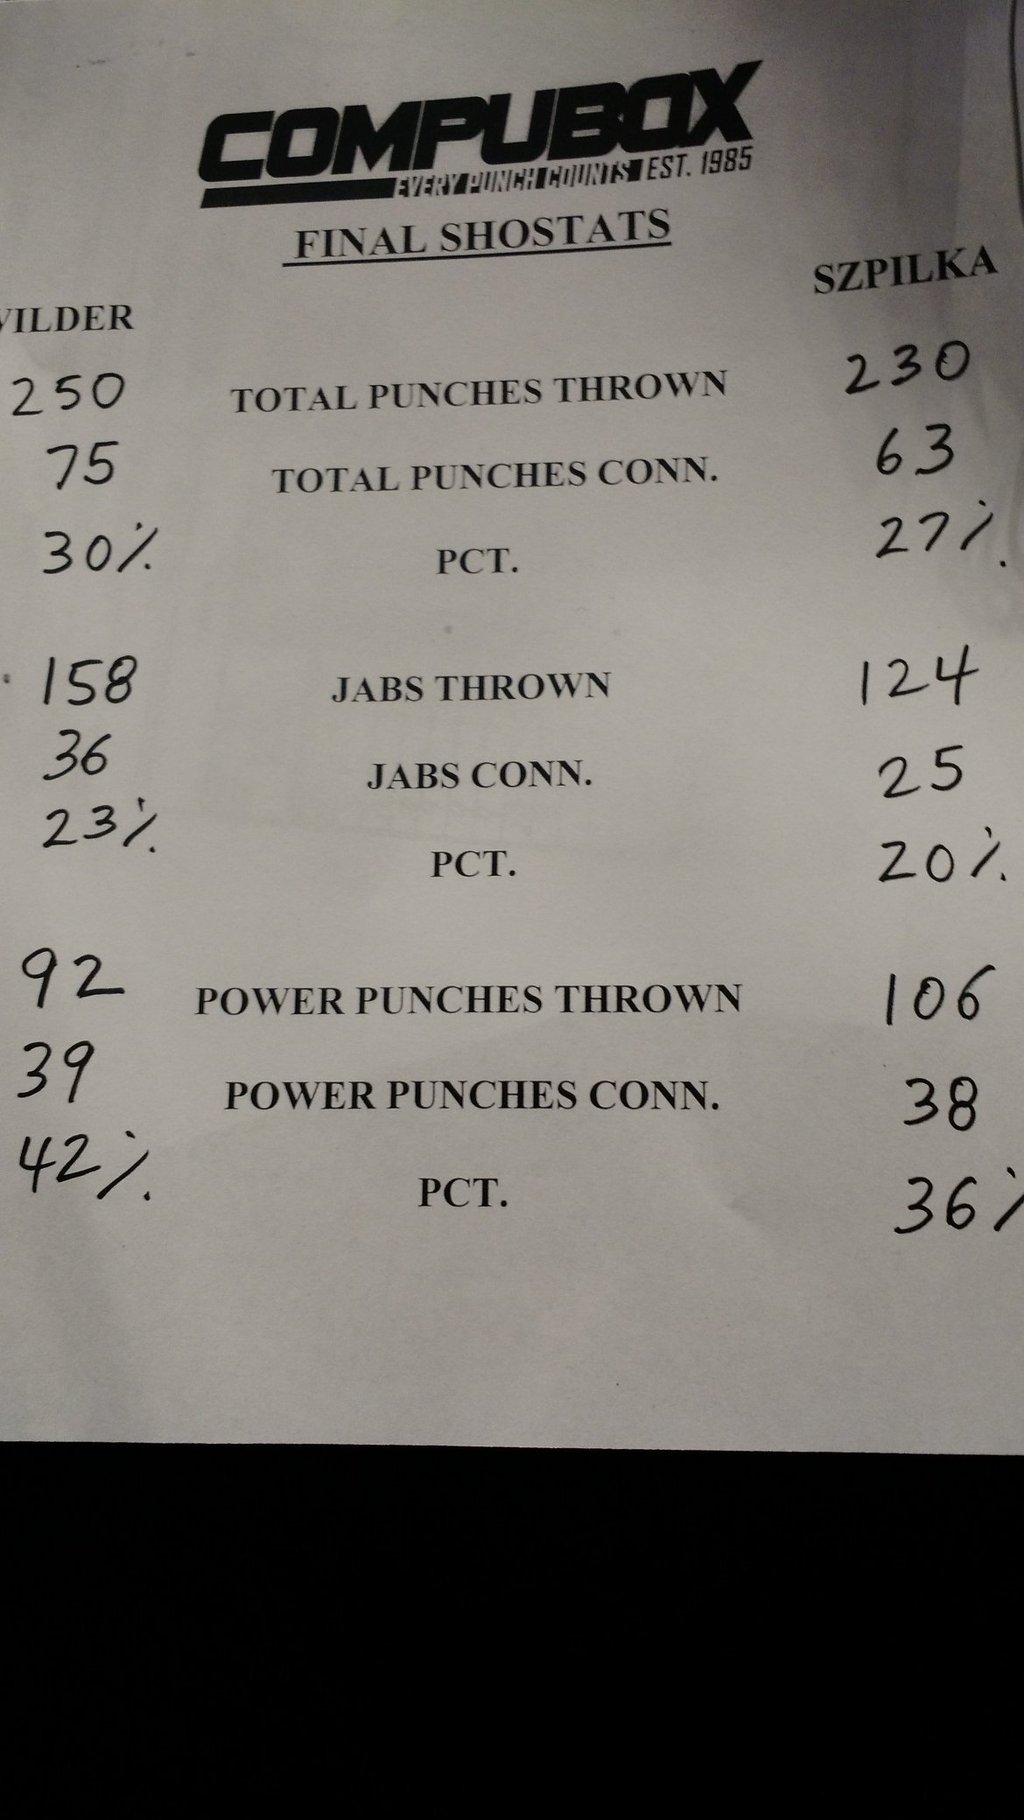 COMPUBOX
EVERY PUNCH COUNTS EST. 1985
FINAL SHOSTATS
VILDER SZPILKA
250 TOTAL PUNCHES THROWN 230
75 TOTAL PUNCHES CONN. 63
30% PCT. 27%
158 JABS THROWN 124
36 JABS CONN. 25
23% PCT. 20%
92 POWER PUNCHES THROWN 106
39 POWER PUNCHES CONN. 38
42% PCT. 36%